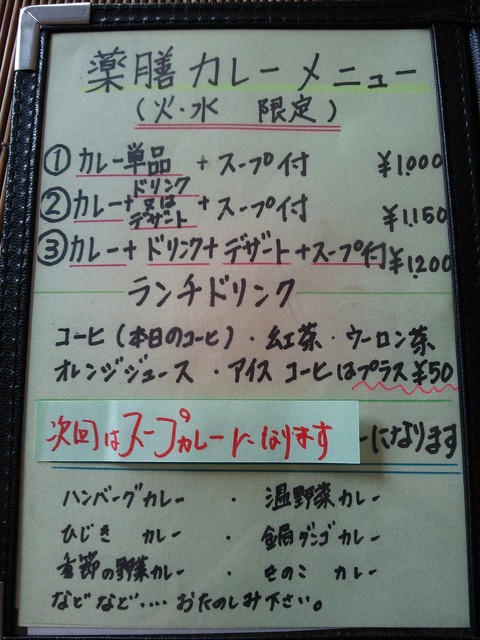 薬膳カレーメニュー
(火・水 限定)
① カレー単品 + スープ付 ¥1,000
② カレー + ドリンク 又は デザート + スープ付 ¥1,150
③ カレー + ドリンク + デザート + スープ付 ¥1,200
ランチドリンク
コーヒ(本日のコーヒ)・紅茶・ウーロン茶
オレンジジュース ・アイス コーヒはプラス ¥50
次回はスープカレーになります ーになります
ハンバーグカレー ・ 温野菜カレー
ひじき カレー ・ ダンゴカレー
季節の野菜カレー ・ きのこ カレー
などなど‥‥ おたのしみ下さい。